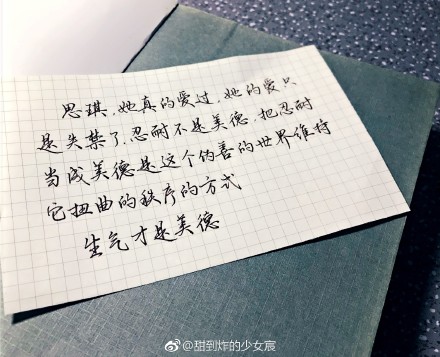 思琪,她真的爱过,她的爱只
是失禁了.忍耐不是美德.把忍耐
当成美德是这个伪善的世界维持
它扭曲的秩序的方式
生气才是美德
@甜到炸的少女宸